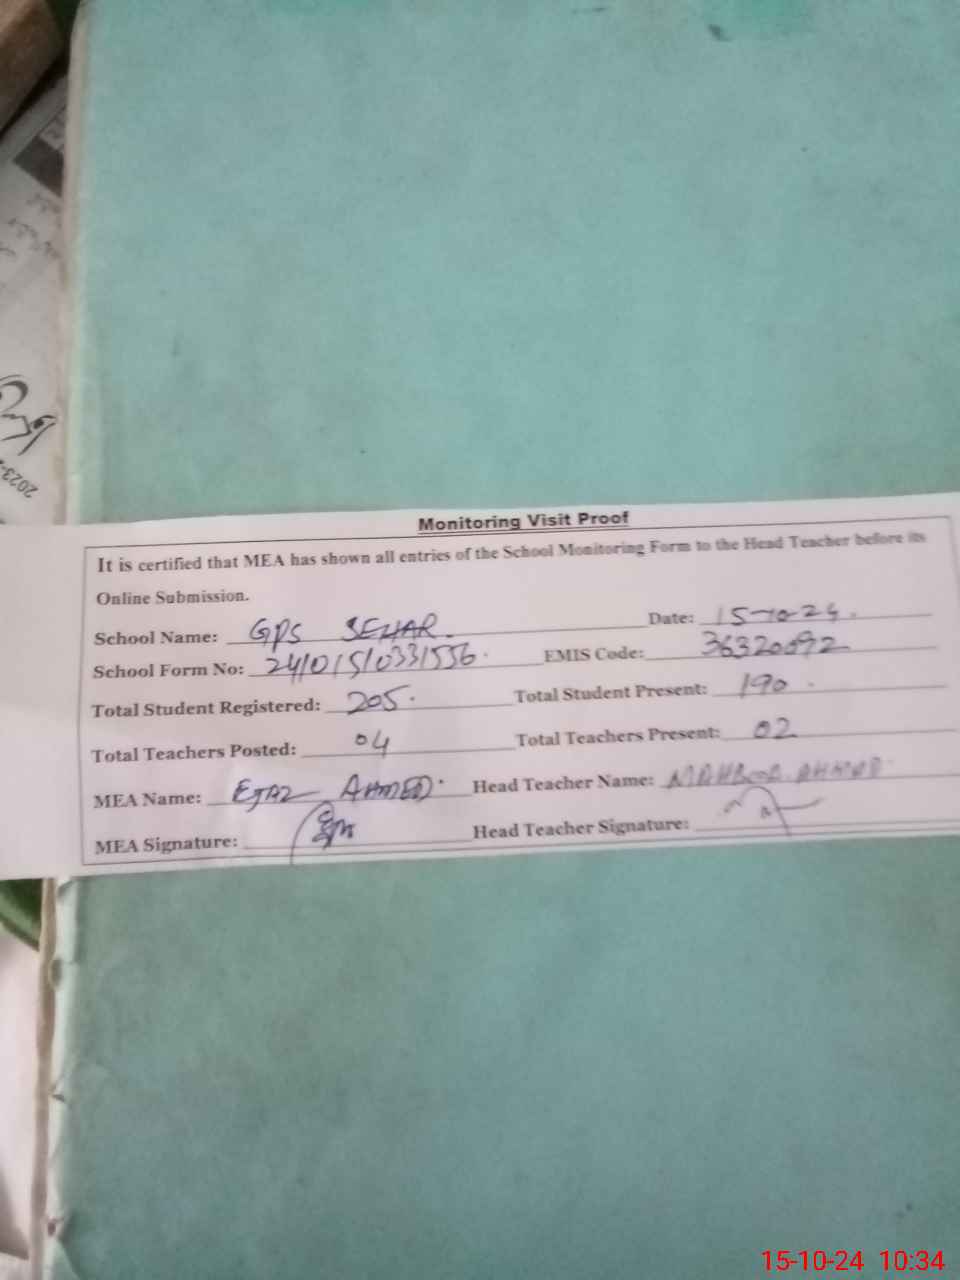 2023-
Monitoring Visit Proof
It is certified that MEA has shown all entries of the School Monitoring Form to the Head Teacher before its
Online Submission.
School Name: GPS SEHAR. Date: 15-10-24.
School Form No: 24101510331556. EMIS Code: 36320092
Total Student Registered: 205. Total Student Present: 190.
Total Teachers Posted: 04 Total Teachers Present: 02
MEA Name: EJAZ AHMED. Head Teacher Name: MAHBOOB AHMAD
MEA Signature: Head Teacher Signature:
15-10-24 10:34